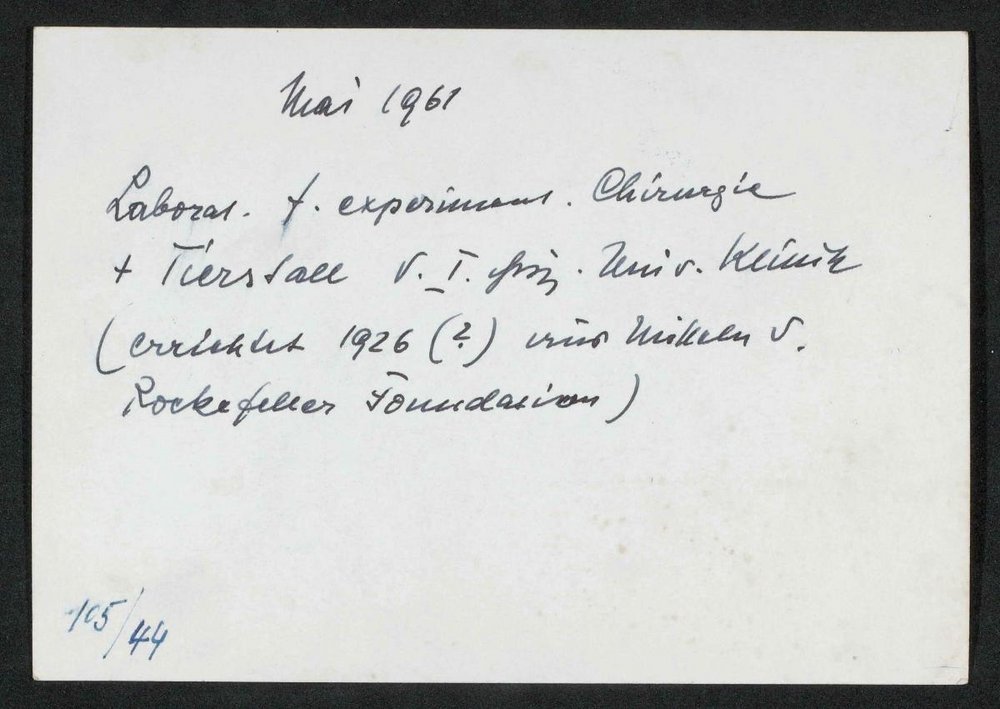 Mai 1961
Laborat. f. experiment. Chirurgie
+ Tierstall v. I. Chir. Univ. Klinik
(errichtet 1926 (?) aus Mitteln v.
Rockefeller Foundation)
105/44